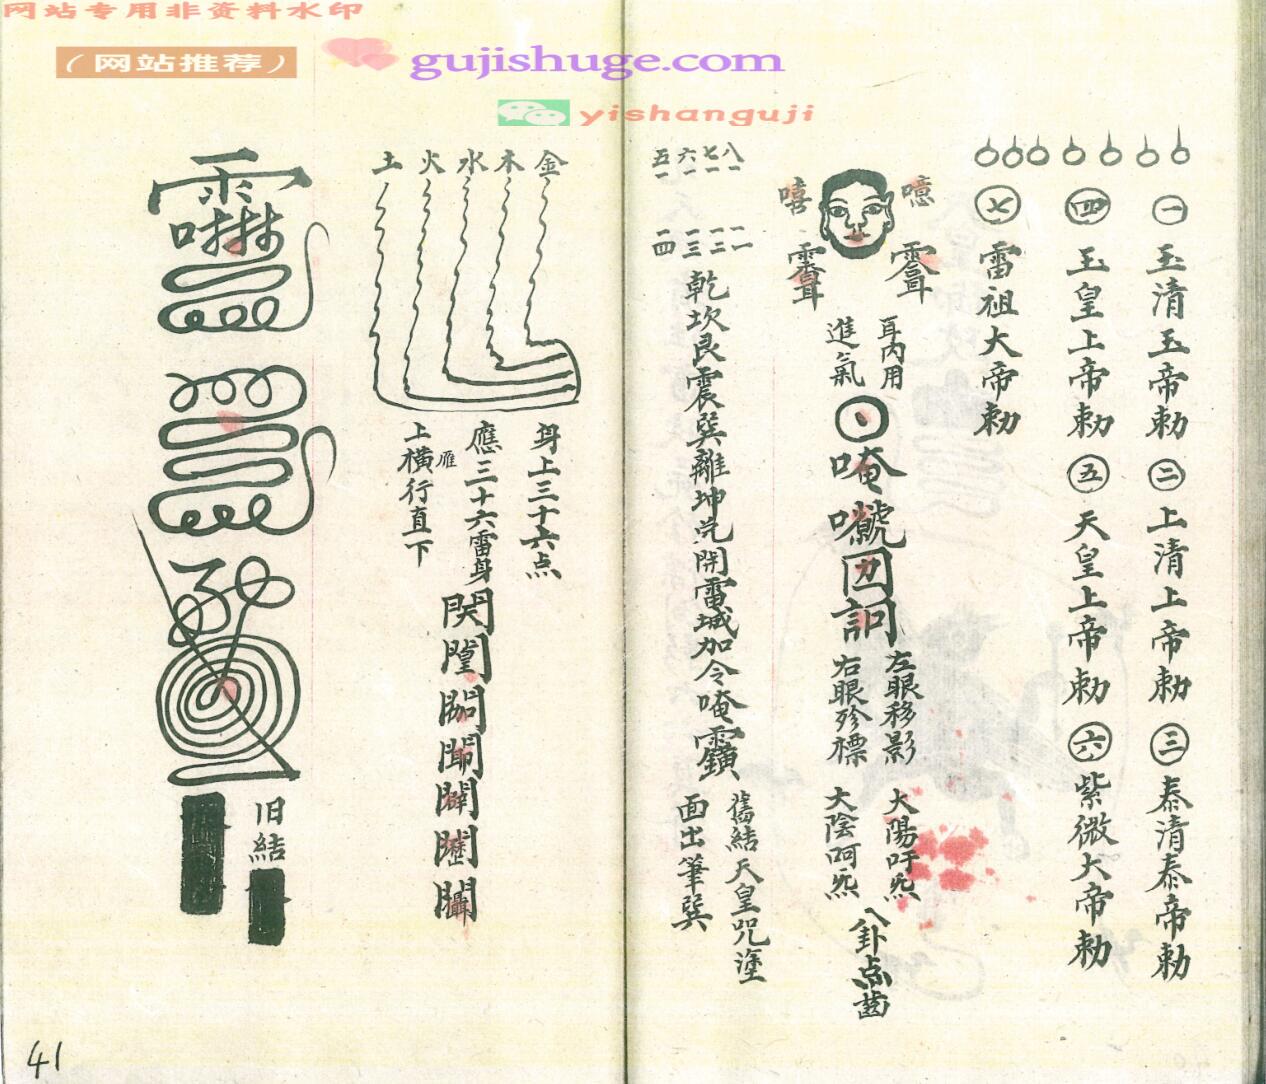 网站专用非资料水印
（网站推荐）
gujishuge.com
yishanguji
㊀玉清玉帝勅㊁上清上帝勅㊂泰清泰帝勅
㊃玉皇上帝勅㊄天皇上帝勅㊅紫微大帝勅
㊆雷祖大帝勅
噫
嘻
耳内用
進氣
唵
左眼移影
右眼殄標
太陽吁炁
太陰呵炁
八卦点齒
八一
七一
六一
五一
一一
一二
一三
一四
乾坎艮震巽離坤兑開雷城加令唵
舊結天皇咒塗
面出筆巽
金
木
水
火
土
身上三十六点
應三十六雷身
雁
上橫行直下
旧結
41